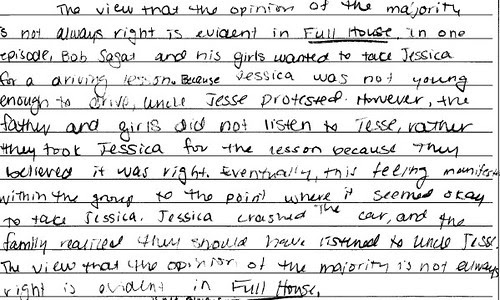 The view that the opinion of the majority
is not always right is evident in Full House. In one
episode, Bob Saget and his girls wanted to take Jessica
for a driving lesson. Because Jessica was not young
enough to drive, uncle Jesse protested. However, the
father and girls did not listen to Jesse, rather
they took Jessica for the lesson because they
believed it was right. Eventually, this feeling manifest
within the group to the point where it seemed okay
to take Jessica. Jessica crashed the car, and the
family realized they should have listened to Uncle Jesse.
The view that the opinion of the majority is not always
right is evident in Full House.